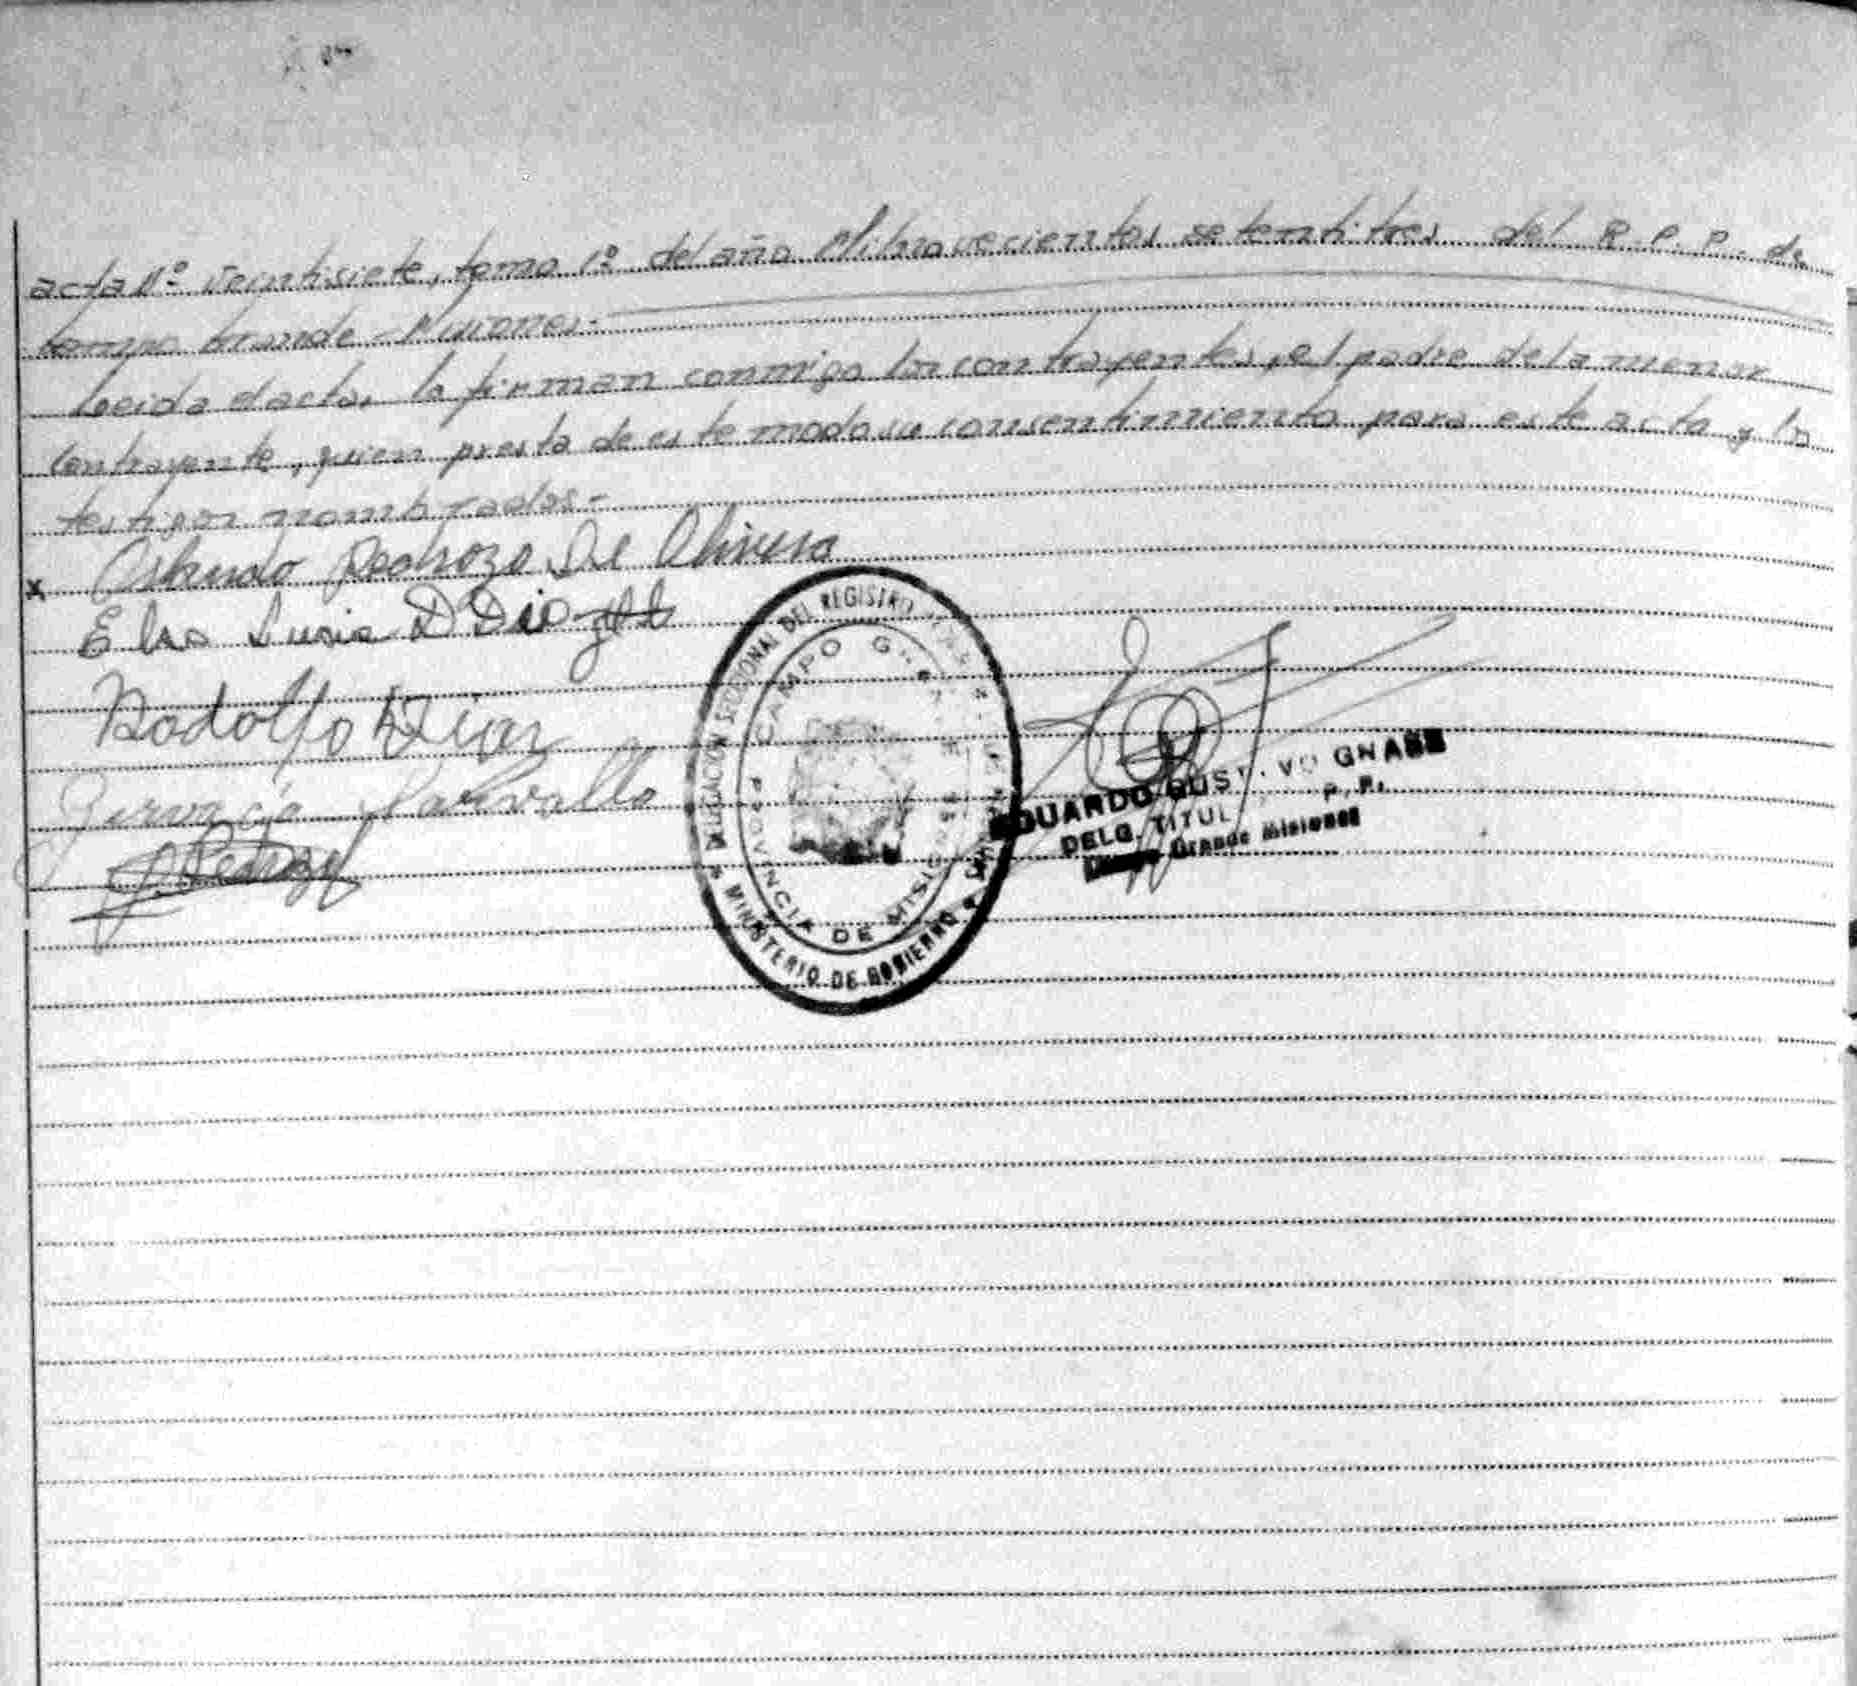 acta Nº veintisiete, tomo 1º del año Milnovecientos setentitres del R. P. P. de
Campo Grande - Misiones.-
Leida elacta, la firman conmigo los contrayentes, el padre dela menor
contrayente, quien presta de este modo su consentimiento para este acta y los
testigos nombrados-
x Pedrozo De Olivera
Rodolfo Diaz
Carvallo
DELEGACION SECCIONAL DEL REGISTRO
CAMPO
PROVINCIA DE MISIONES
MINISTERIO DE GOBIERNO
EDUARDO GUSTAVO
DELG. TITUL P. P.
Grande Misiones